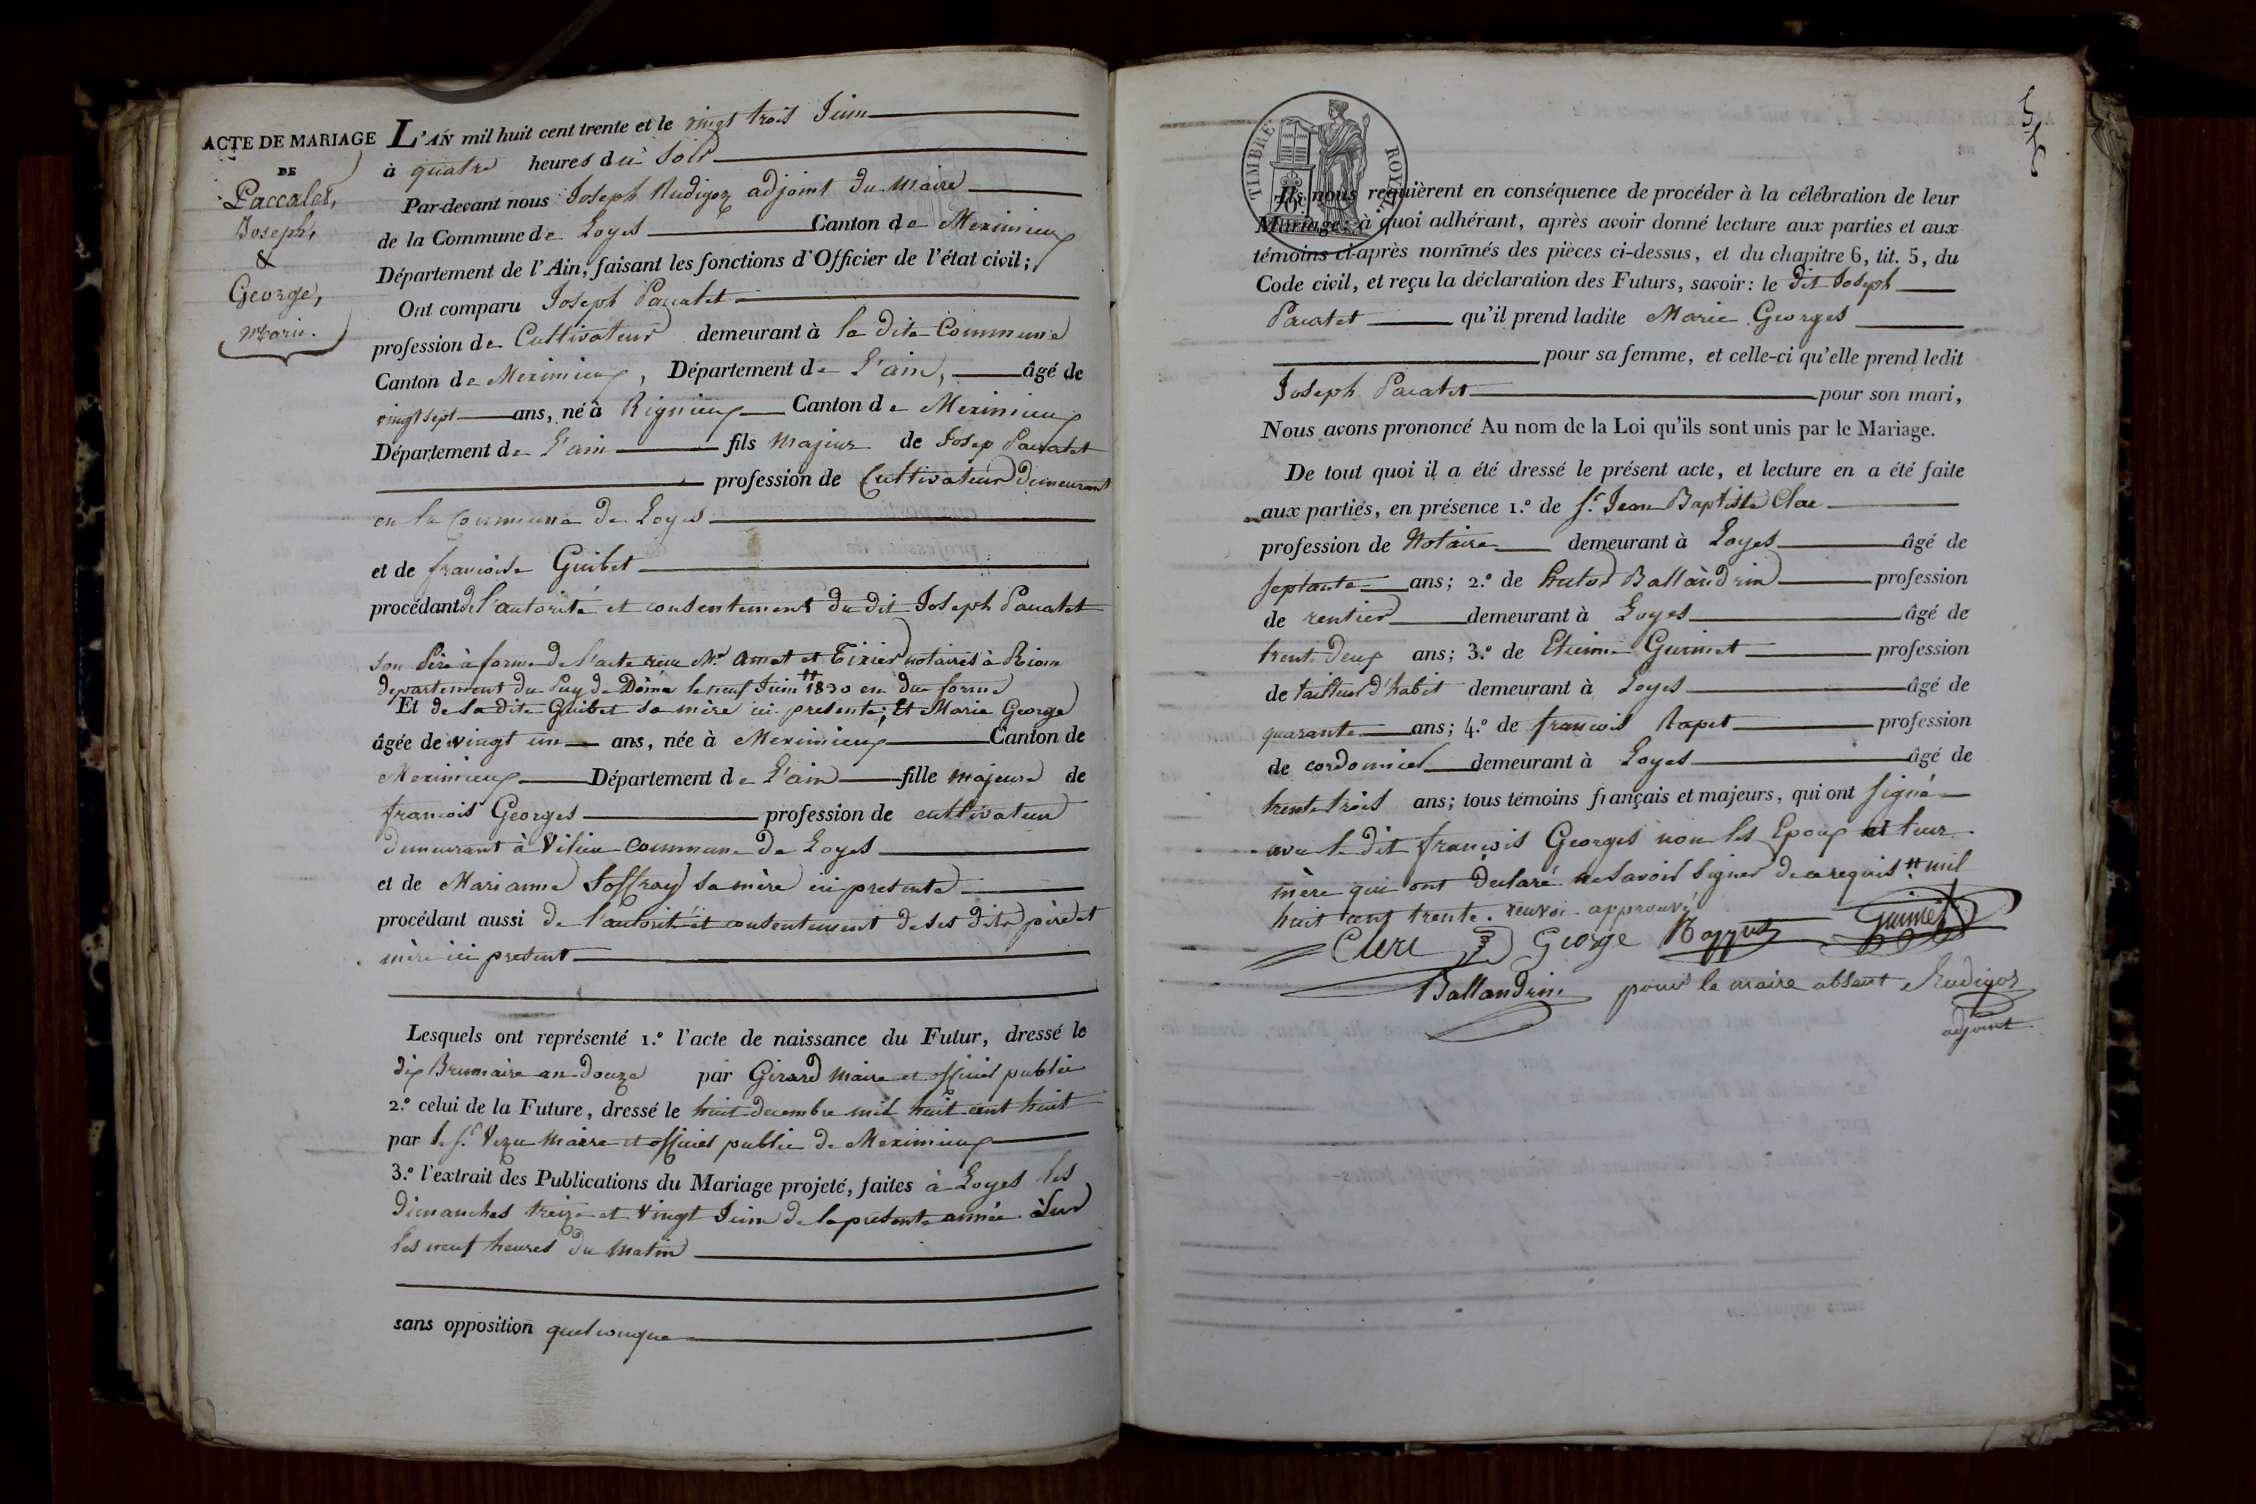 ACTE DE MARIAGE
DE
Paccalet,
Joseph,
&
George,
Marie.
L'AN mil huit cent trente et le vingt trois Juin
à quatre heures du Soir
Par-devant nous Joseph Rudigoz adjoint du Maire
de la Commune de Loyes Canton de Meximieux
Département de l'Ain, faisant les fonctions d'Officier de l'état civil;
Ont comparu Joseph Pacatet
profession de Cultivateur demeurant à la dite Commune
Canton de Meximieux, Département de L'ain, âgé de
vingt sept ans, né à Rignieux Canton de Meximieux
Département de L'ain fils Majeur de Josep Pacatet
profession de Cultivateur demeurant
en la Commune de Loyes
et de françoise Guibet
procédant de l'autorité et consentement du dit Joseph Pacatet
son Père à forme de l'acte reçu Me. Amet et Tixier notaires à Riom
departement du Puy de Dôme le neuf Juin 1830 en due forme
Et de la dite Guibet sa mère ici presente; Et Marie George
âgée de vingt un ans, née à Meximieux Canton de
Meximieux Département de L'ain fille majeure de
françois Georges profession de cultivateur
demeurant à Vilieu Commune de Loyes
et de Marianne Soffray sa mère ici presente
procédant aussi de l'autorité et consentement de ses dits père et
mère ici present
Lesquels ont représenté 1.º l'acte de naissance du Futur, dressé le
dix Brumaire an douze par Girard Maire et officier public
2.º celui de la Future, dressé le huit decembre mil huit cent huit
par le Sr. Vezu Maire et officier public de Meximieux
3.º l'extrait des Publications du Mariage projeté, faites à Loyes les
dimanches treize et vingt Juin de la présente année Sur
les neuf heures du Matin
sans opposition quelconque
TIMBRE ROYAL
Ils nous requièrent en conséquence de procéder à la célébration de leur
Mariage; à quoi adhérant, après avoir donné lecture aux parties et aux
témoins ci-après nommés des pièces ci-dessus, et du chapitre 6, tit. 5, du
Code civil, et reçu la déclaration des Futurs, savoir: le dit Joseph
Pacatet qu'il prend ladite Marie Georges
pour sa femme, et celle-ci qu'elle prend ledit
Joseph Pacatet pour son mari,
Nous avons prononcé Au nom de la Loi qu'ils sont unis par le Mariage.
De tout quoi il a été dressé le présent acte, et lecture en a été faite
aux parties, en présence 1.º de Sr. Jean Baptiste Clerc
profession de Notaire demeurant à Loyes âgé de
septante ans; 2.º de Ballandrin profession
de rentier demeurant à Loyes âgé de
trente deux ans; 3.º de Etienne Guinet profession
de tailleur d'habit demeurant à Loyes âgé de
quarante ans; 4.º de françois Rapet profession
de cordonnier demeurant à Loyes âgé de
trente trois ans; tous témoins français et majeurs, qui ont signé
avec le dit françois Georges non les Epoux et leur
mère qui ont declaré ne savoir signer de ce requis # mil
huit cent trente. renvoi approuvé
Clerc George Guinet
Ballandrin pour le maire absent Rudigoz
adjoint